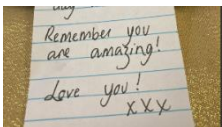 Remember you
are amazing!
Love you!
xxx